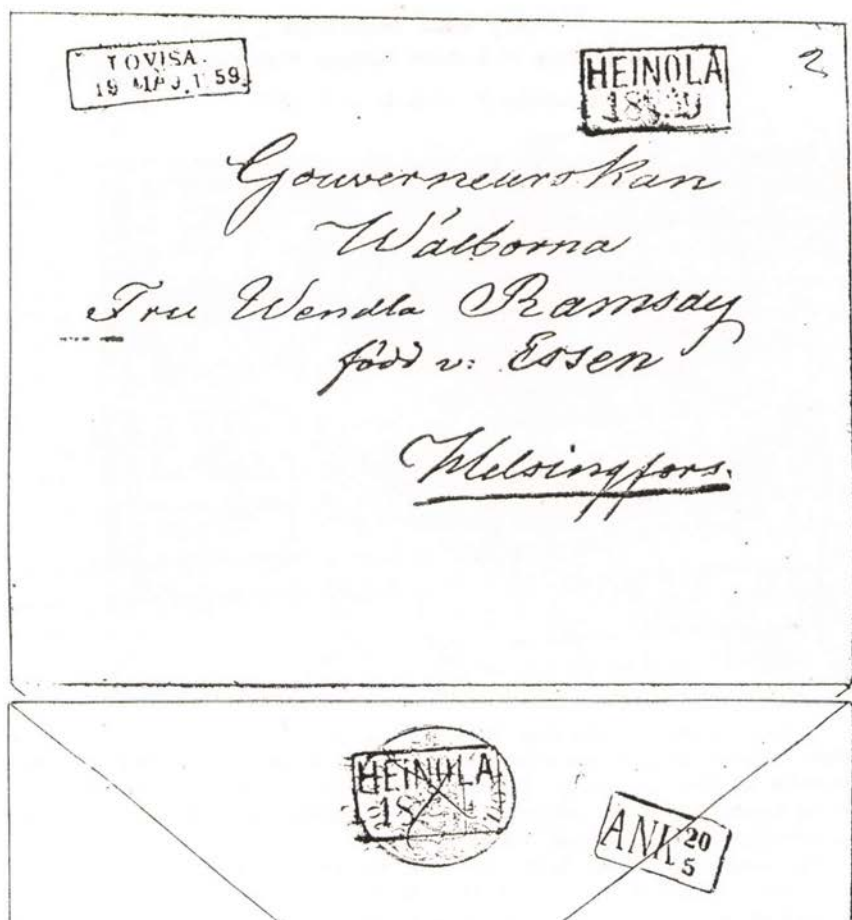 LOVISA.
19 MAJ. 1859.
HEINOLA
2
Gouverneurskan
Wälborna
Fru Wendla Ramsay
född v: Essen
Helsingfors.
HEINOLA
18
ANK 20
5